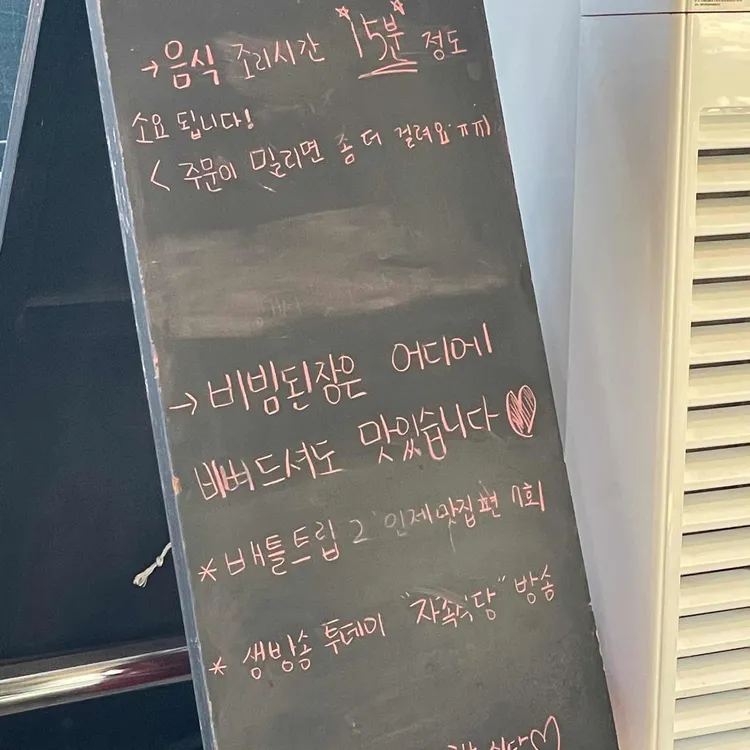 → 음식 조리시간 15분 정도
소요 됩니다!
< 주문이 밀리면 좀 더 걸려요 ㅠㅠ)
→ 비빔된장은 어디에
비벼드셔도 맛있습니다 ♡
* 배틀트립 2 인제맛집편 7회
* 생방송 투데이 "자족식당" 방송